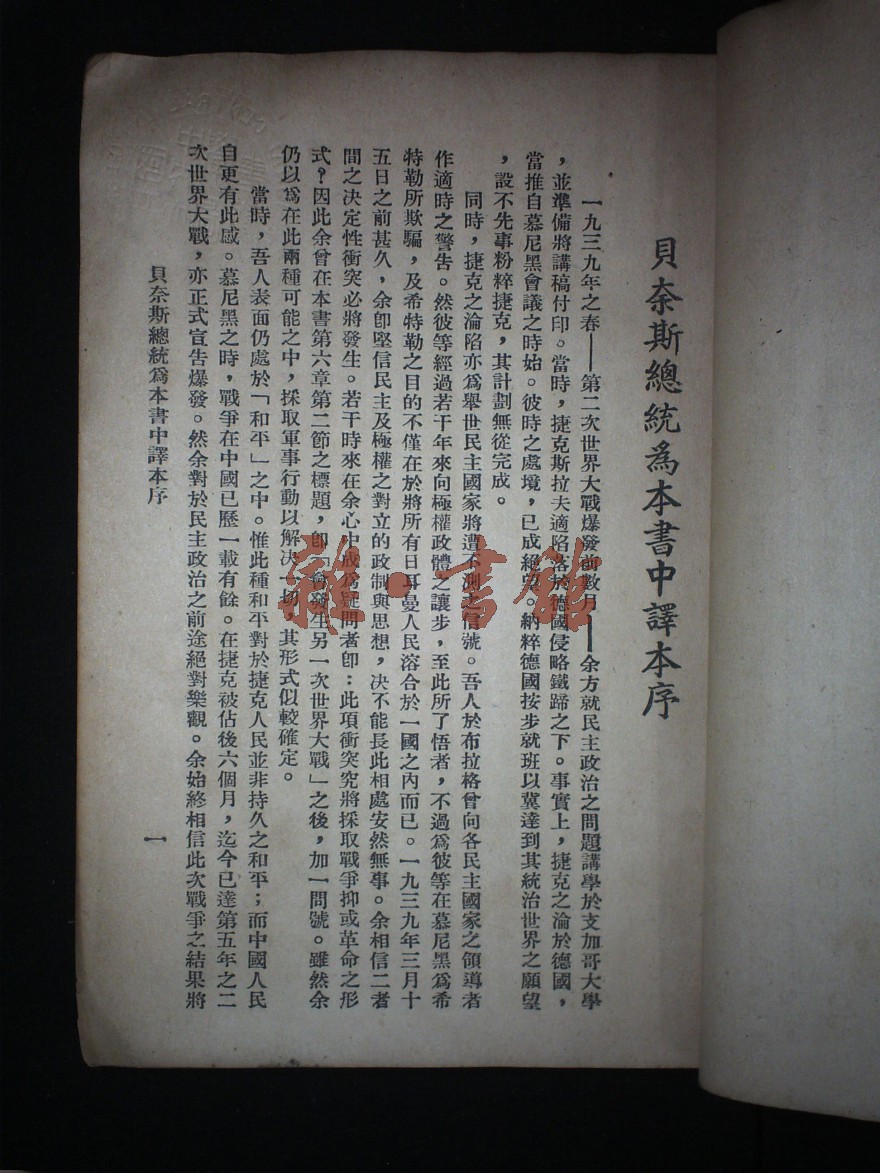 貝奈斯總統為本書中譯本序
一九三九年之春——第二次世界大戰爆發前數月——余方就民主政治之問題講學於支加哥大學
，並準備將講稿付印。當時，捷克斯拉夫適陷落於德國侵略鐵蹄之下。事實上，捷克之淪於德國，
當推自慕尼黑會議之時始。彼時之處境，已成絕望。納粹德國按步就班以冀達到其統治世界之願望
，設不先事粉粹捷克，其計劃無從完成。
同時，捷克之淪陷亦為舉世民主國家將遭不測之信號。吾人於布拉格曾向各民主國家之領導者
作適時之警告。然彼等經過若干年來向極權政體之讓步，至此所了悟者，不過爲彼等在慕尼黑爲希
特勒所欺騙，及希特勒之目的不僅在於將所有日耳曼人民溶合於一國之內而已。一九三九年三月十
五日之前甚久，余卽堅信民主及極權之對立的政制與思想，決不能長此相處安然無事。余相信二者
間之決定性衝突必將發生。若干時來在余心中成爲疑問者卽：此項衝突究將採取戰爭抑或革命之形
式？因此余曾在本書第六章第二節之標題，卽「會發生另一次世界大戰」之後，加一問號。雖然余
仍以爲在此兩種可能之中，採取軍事行動以解決一切，其形式似較確定。
當時，吾人表面仍處於「和平」之中。惟此種和平對於捷克人民並非持久之和平；而中國人民
自更有此感。慕尼黑之時，戰爭在中國已歷一載有餘。在捷克被佔後六個月，迄今已達第五年之二
次世界大戰，亦正式宣告爆發。然余對於民主政治之前途絕對樂觀。余始終相信此次戰爭之結果將
貝奈斯總統爲本書中譯本序
一
雜·書館